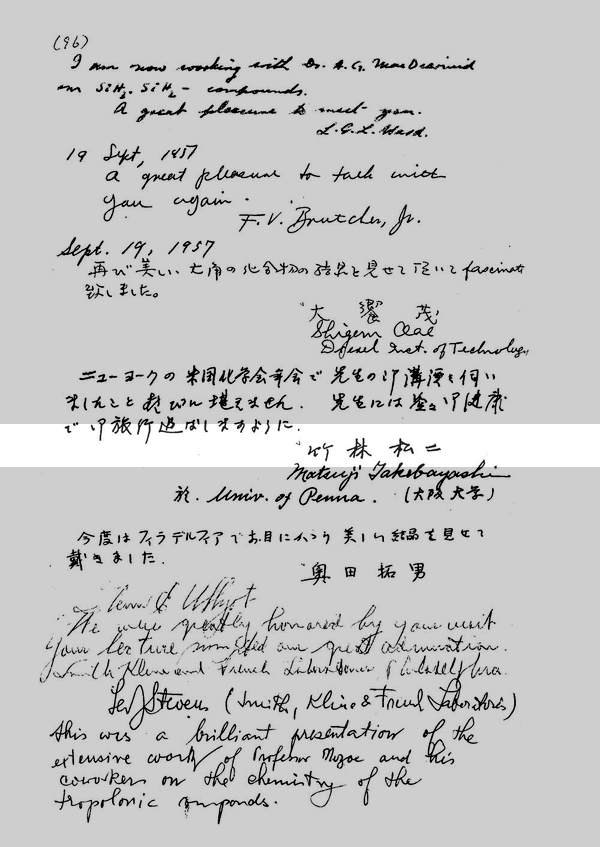 (96)
I am now working with Dr. A.G. MacDiarmid
on SiH3. SiH2 - compounds.
A great pleasure to meet you.
L.G.L. Ward.
19 Sept, 1957
A great pleasure to talk with
you again.
F.V. Brutcher, Jr.
Sept. 19, 1957
再び美しい七角の化合物の結晶を見せて頂いて fascinate
致しました。
大饗 茂
Shigeru Oae
Drexel Inst. of Technology
ニューヨークの米国化学会年会で先生の御講演を伺い
ましたこと喜びに堪えません. 先生には益々御健康
で御旅行遊ばしますように.
竹林松二
Matsuji Takebayashi
於. Univ. of Penna. (大阪大学)
今度はフィラデルフィアでお目にかかり美しい結晶を見せて
戴きました.
奥田拓男
We were greatly honored by your visit
Your lecture our great admiration.
Smith Kline and French Laboratories Philadelphia.
Stevens (Smith, Kline & French Laboratories)
This was a brilliant presentation of the
extensive work of Professor Nozoe and his
coworkers on the chemistry of the
tropolonic compounds.